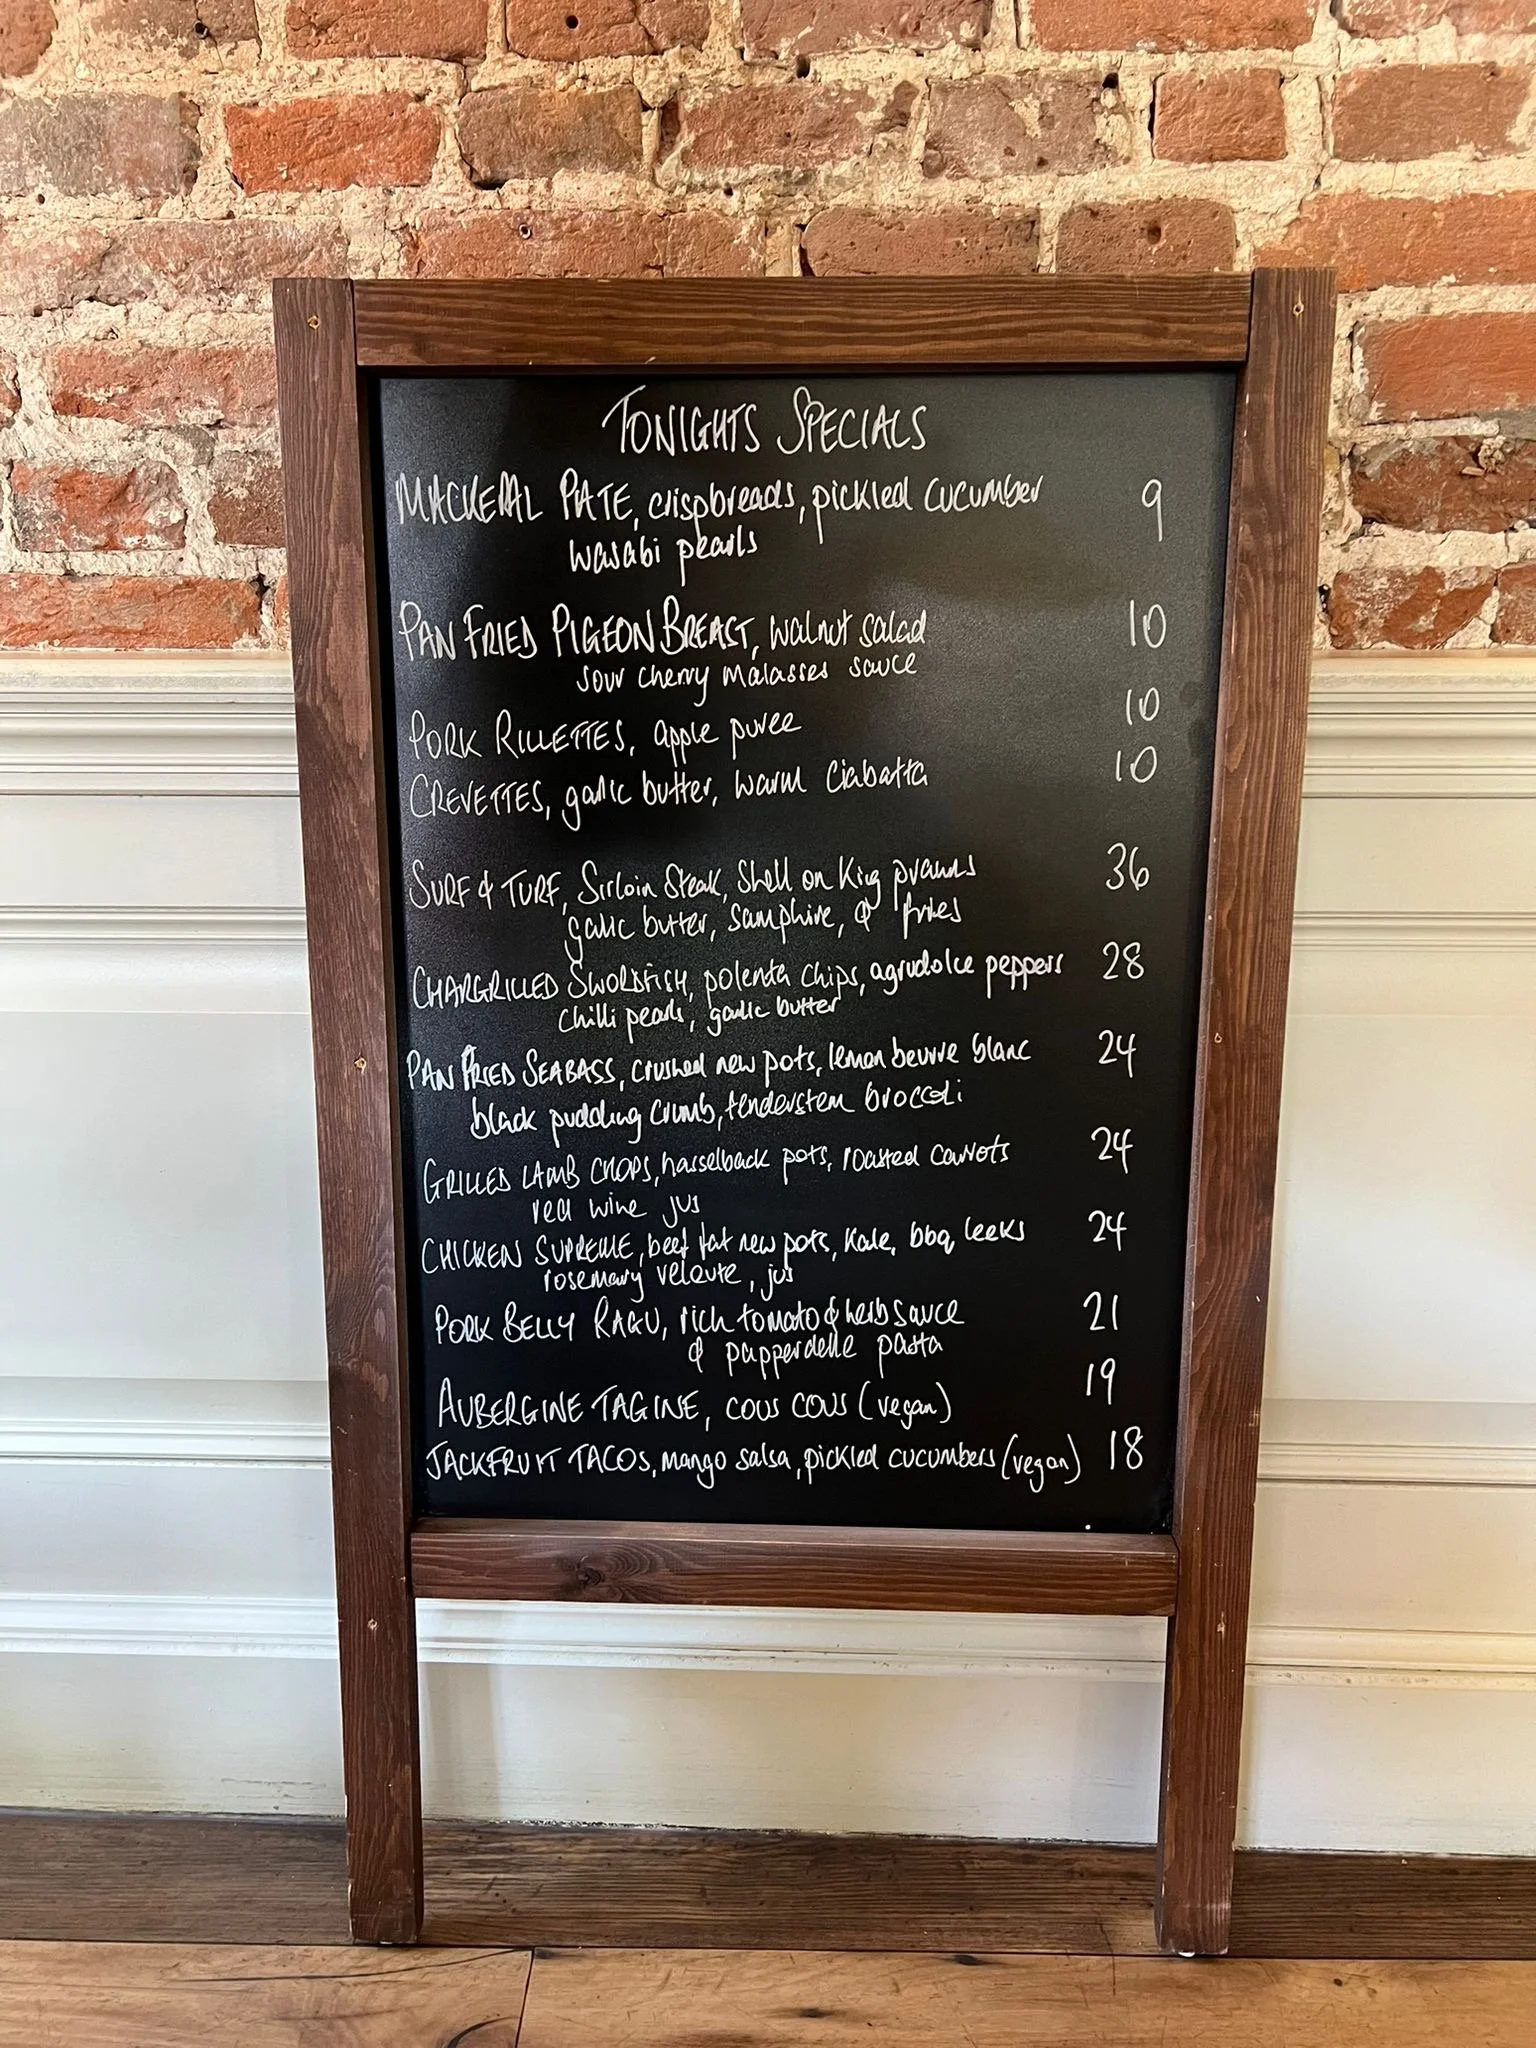 TONIGHTS SPECIALS
MACKERAL PATE, crispbreads, pickled cucumber 9
wasabi pearls
PAN FRIED PIGEON BREAST, walnut salad 10
sour cherry malasses sauce
PORK RILLETTES, apple puree 10
CREVETTES, garlic butter, warm ciabatta 10
SURF & TURF, Sirloin Steak, Shell on King prawns 36
garlic butter, samphire, & fries
CHARGRILLED SWORDFISH, polenta chips, agrudolce peppers 28
chilli pearls, garlic butter
PAN FRIED SEABASS, crushed new pots, lemon beurre blanc 24
black pudding crumb, tenderstem broccoli
GRILLED LAMB CHOPS, hasselback pots, roasted carrots 24
red wine jus
CHICKEN SUPREME, beef fat new pots, kale, bbq leeks 24
rosemary veloute, jus
PORK BELLY RAGU, rich tomato & herb sauce 21
& papperdelle pasta
AUBERGINE TAGINE, cous cous (vegan) 19
JACKFRUIT TACOS, mango salsa, pickled cucumbers (vegan) 18